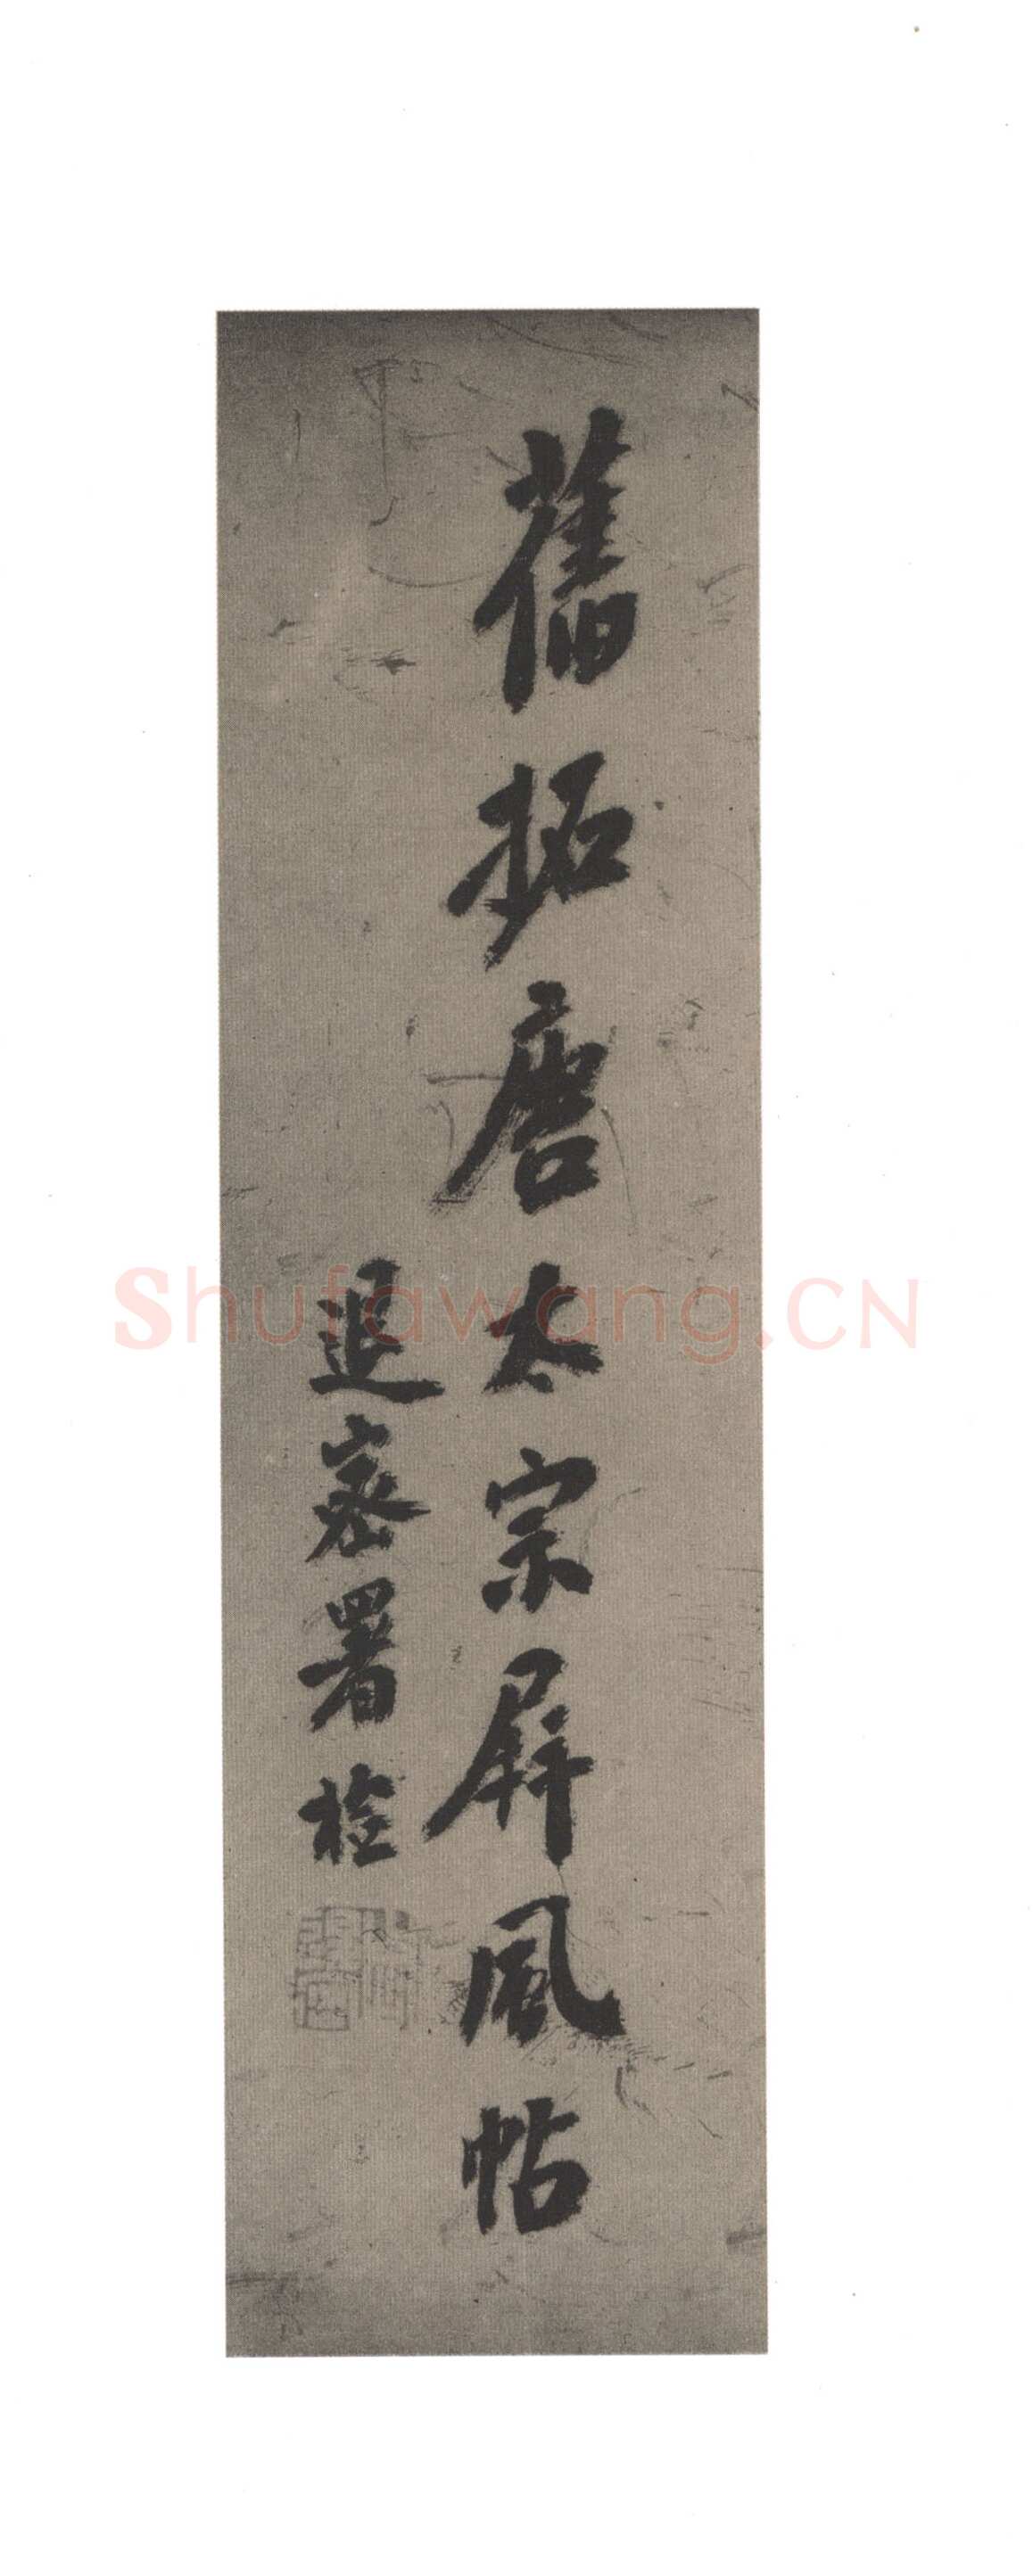 舊拓唐太宗屏風帖
退密署檢
Shufawang.CN